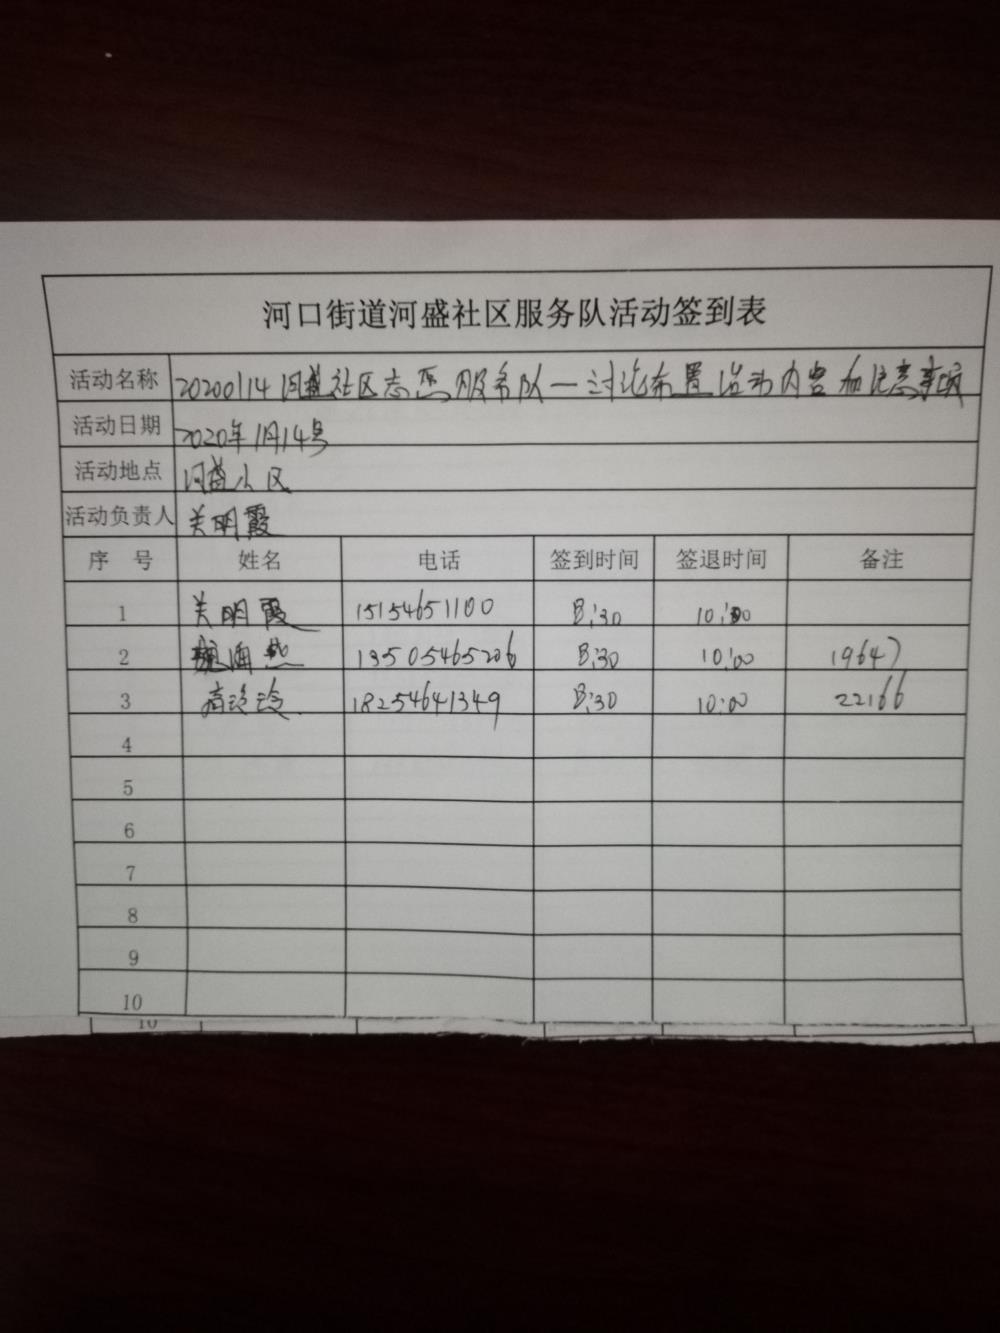 河口街道河盛社区服务队活动签到表
活动名称 20200114河盛社区志愿服务队—讨论布置活动内容和注意事项
活动日期 2020年1月14号
活动地点 河盛小区
活动负责人 关明霞
序号 姓名 电话 签到时间 签退时间 备注
1 关明霞 15154651100 8:30 10:00
2 13505465206 8:30 10:00 19647
3 高玲玲 18254641349 8:30 10:00 22166
4
5
6
7
8
9
10
10